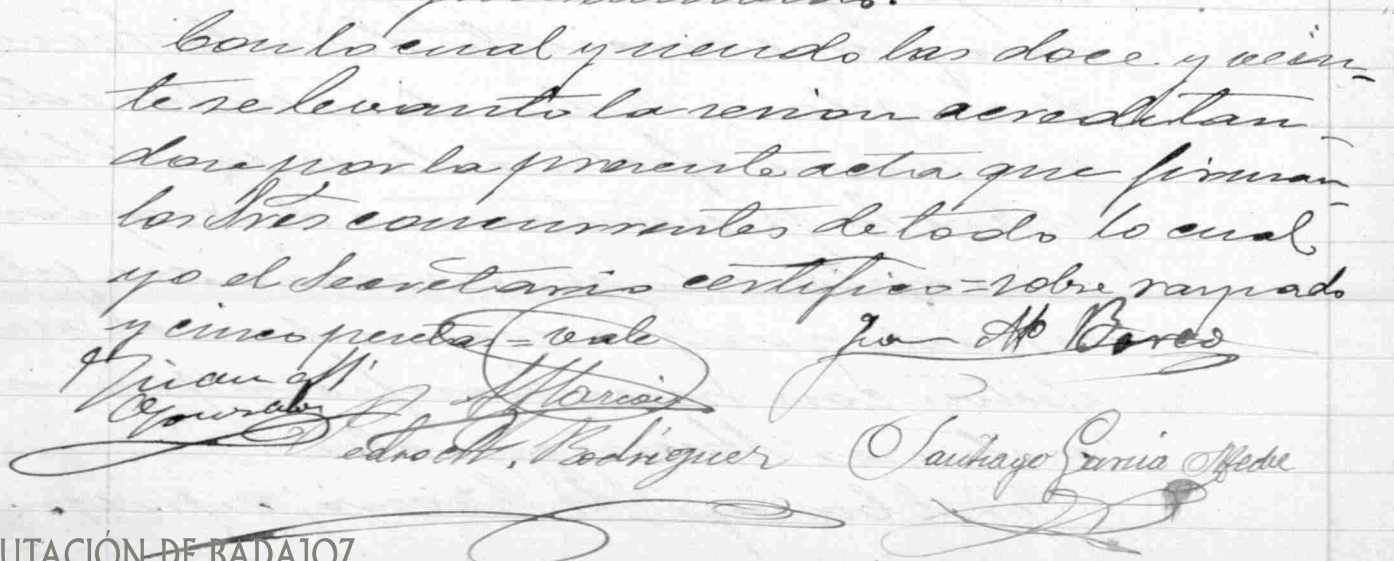 Con lo cual y siendo las doce y vein-
te se levantó la sesion acreditan-
dose por la presente acta que firman
los Sres concurrentes de todo lo cual
yo el Secretario certifico = sobre raspado
y cinco pesetas = vale
Juan Mª Borco
Juan Mª
Gonzalez
Pedro M. Rodriguez
Santiago Garcia
UTACIÓN DE BADAJOZ